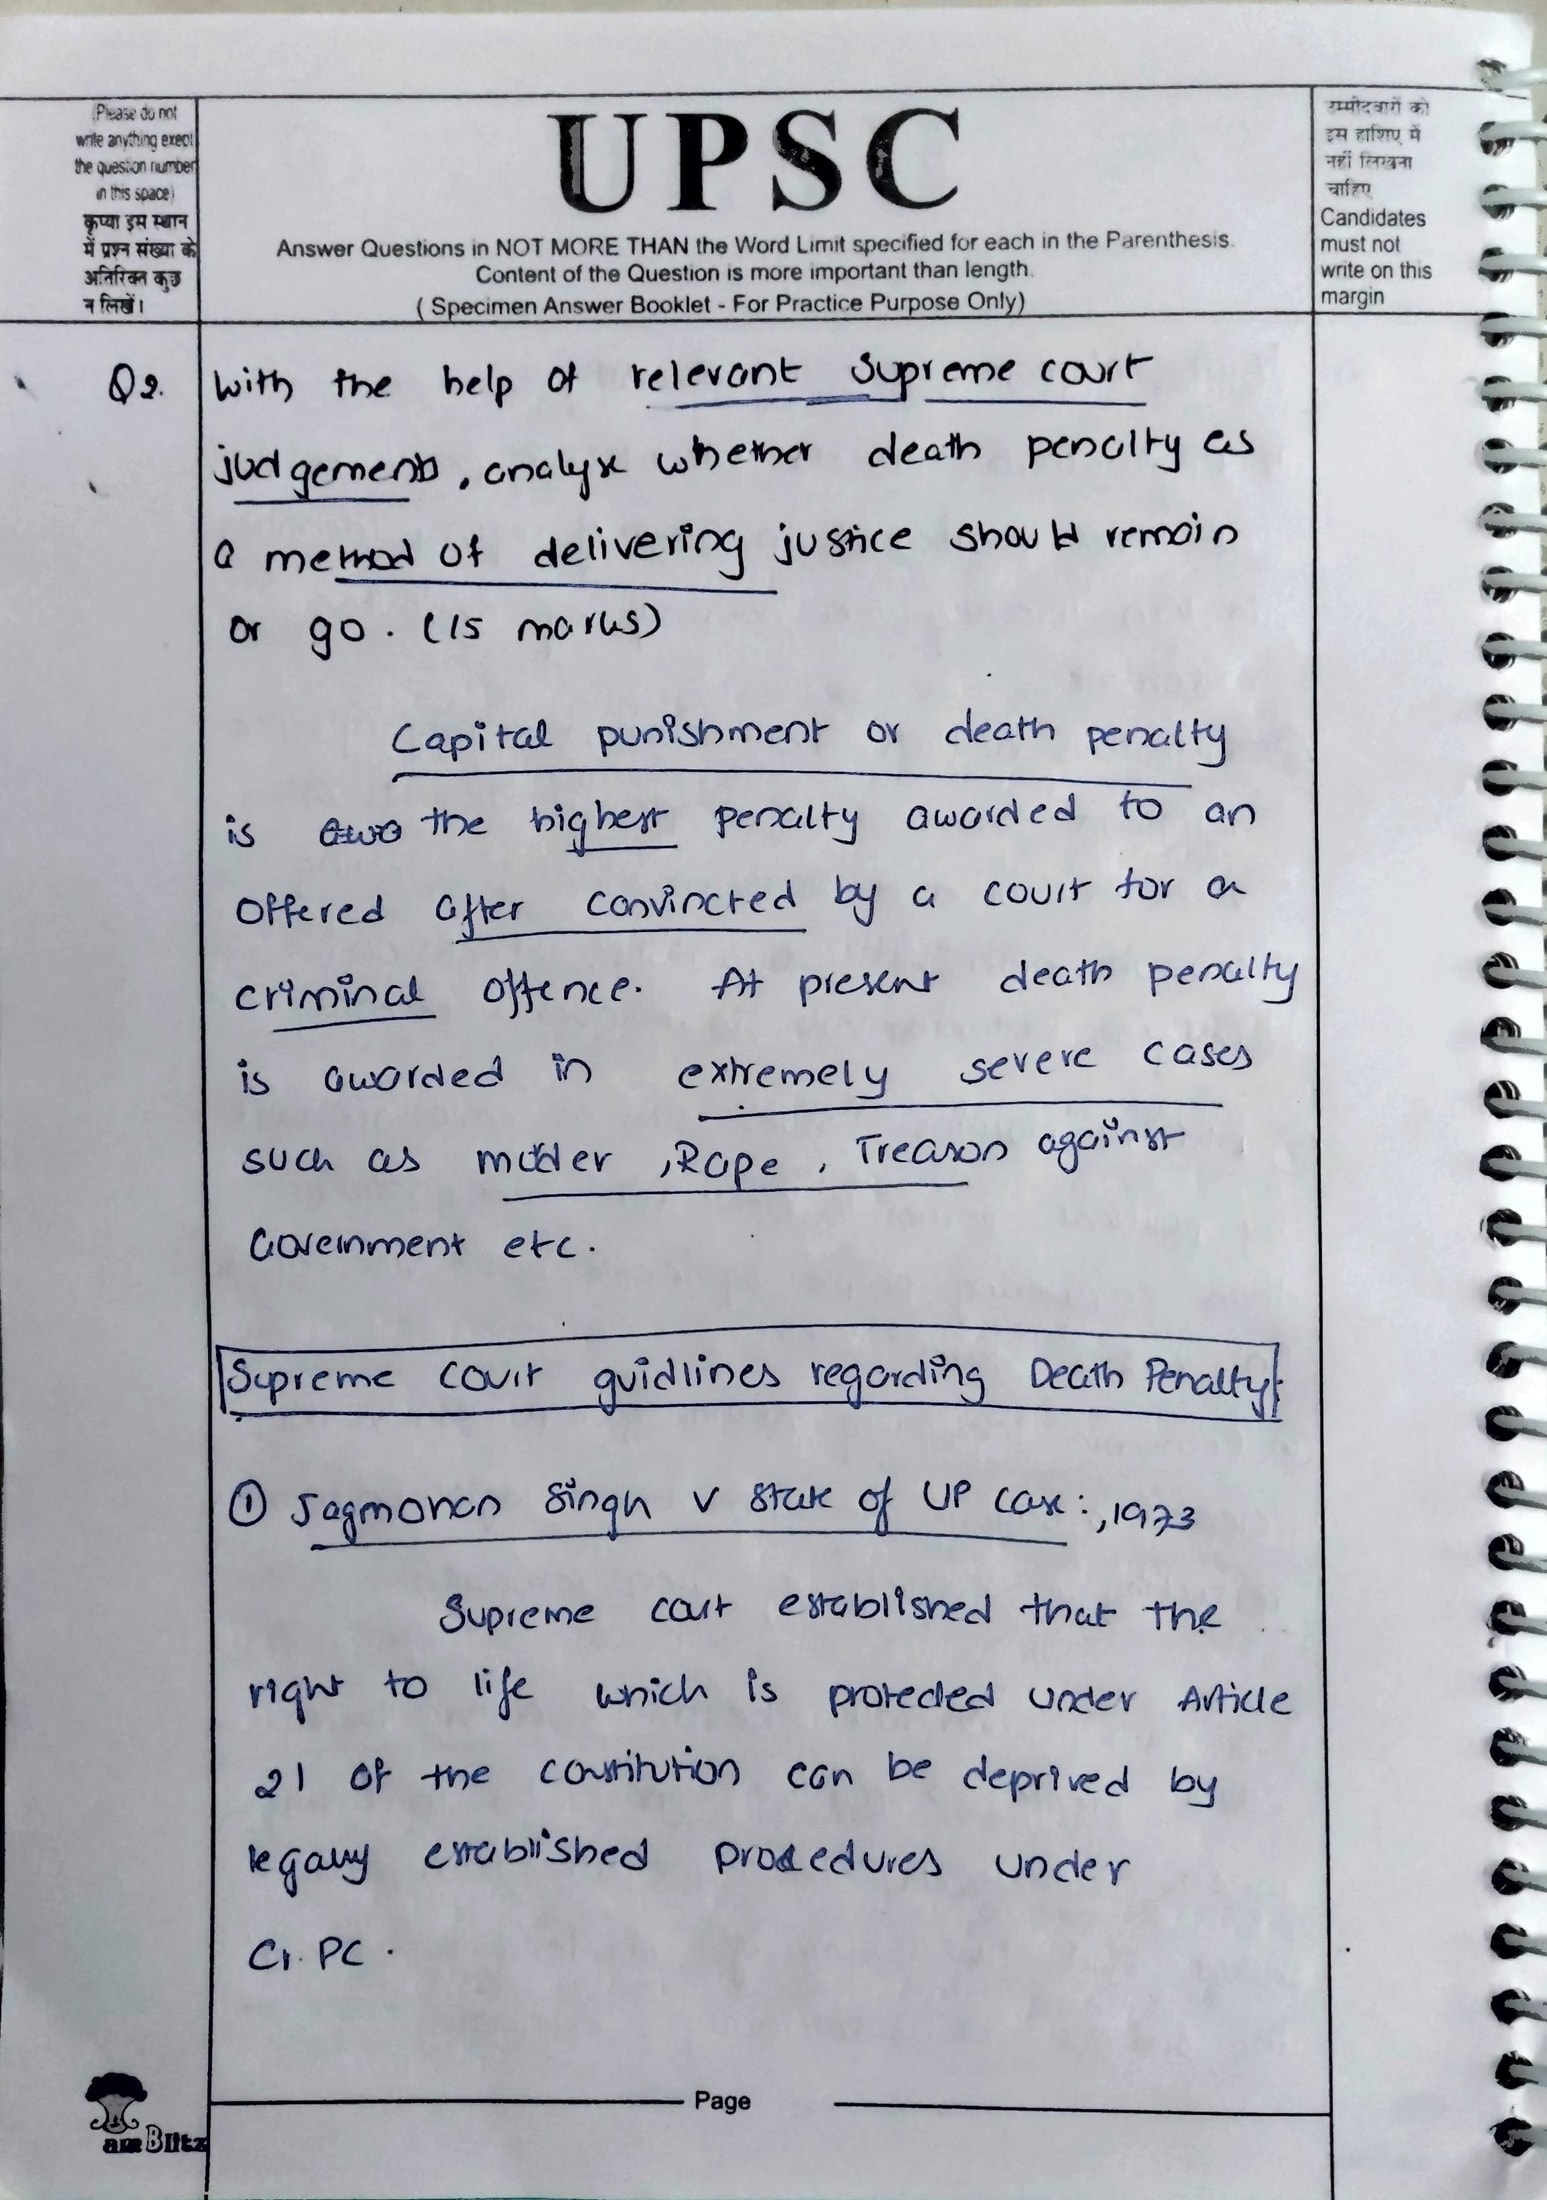 (Please do not
write anything exept
the question number
in this space)
कृप्या इस स्थान
में प्रश्न संख्या के
अतिरिक्त कुछ
न लिखें।
UPSC
Answer Questions in NOT MORE THAN the Word Limit specified for each in the Parenthesis.
Content of the Question is more important than length.
( Specimen Answer Booklet - For Practice Purpose Only)
उम्मीदवारों को
इस हाशिए में
नहीं लिखना
चाहिए
Candidates
must not
write on this
margin
Q2. With the help of relevant Supreme court
judgements, analyse whether death penalty as
a method of delivering justice should remain
or go. (15 marks)
Capital punishment or death penalty
is the highest penalty awarded to an
offered after convincted by a court for a
criminal offence. At present death penalty
is awarded in extremely severe cases
such as , Rape, Treason against
Government etc.
Supreme court guidlines regarding Death Penalty
① Jagmohan Singh v State of UP case:, 1973
Supreme court established that the
right to life which is protected under Article
21 of the constitution can be deprived by
legally established procedures under
Cr. PC.
Page
Blitz